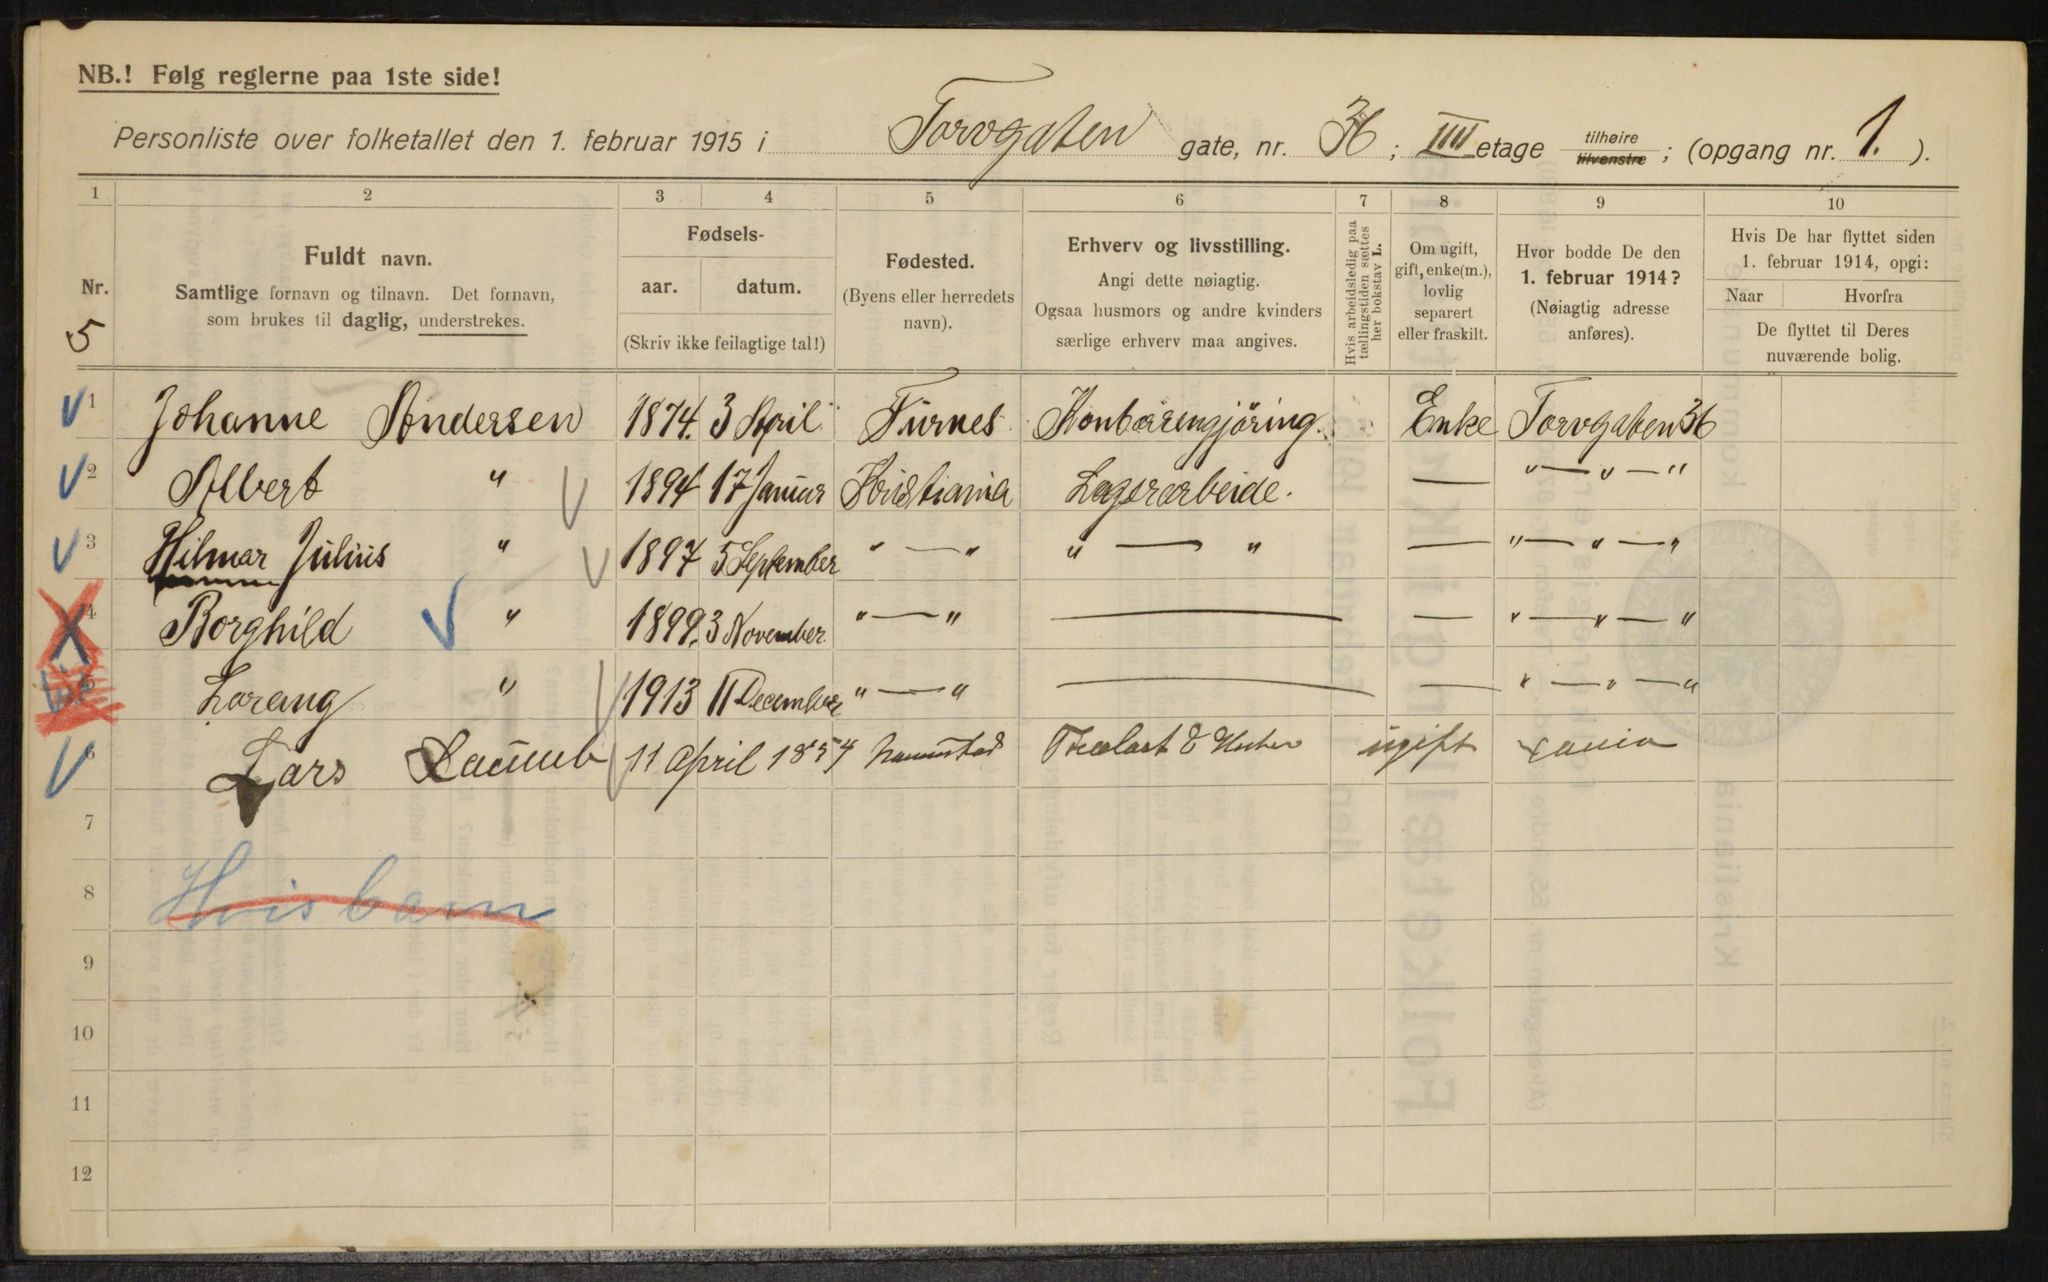 NB.! Følg reglerne paa 1ste side!
Personliste over folketallet den 1. februar 1915 i Torvgaten gate, nr. 36; IIII etage tilhøire tilvenstre; (opgang nr. 1.).
1 2 3 4 5 6 7 8 9 10
Nr.
5
Fuldt navn.
Samtlige fornavn og tilnavn. Det fornavn,
som brukes til daglig, understrekes.
Fødsels-
aar. datum.
(Skriv ikke feilagtige tal!)
Fødested.
(Byens eller herredets
navn).
Erhverv og livsstilling.
Angi dette nøiagtig.
Ogsaa husmors og andre kvinders
særlige erhverv maa angives.
Hvis arbeidsledig paa
tællingstiden sættes
her bokstav L.
Om ugift,
gift, enke(m.),
lovlig
separert
eller fraskilt.
Hvor bodde De den
1. februar 1914?
(Nøiagtig adresse
anføres).
Hvis De har flyttet siden
1. februar 1914, opgi:
Naar Hvorfra
De flyttet til Deres
nuværende bolig.
1 Johanne Andersen 1874. 3 April Furnes Kontorrengjøring. Enke Torvgaten 36
2 Albert " 1894 17 Januar Kristiania Lagerarbeide. — " — " — "
3 Hilmar Julius " 1897 5 September " — " " — " — " — " — "
4 Borghild " 1899. 3 November " — " — — " — " — "
5 Lorang " 1913 11 December " — " — — " — " — "
6 Lars 11 April 1854 ugift
7
8 Hvis barn
9
10
11
12